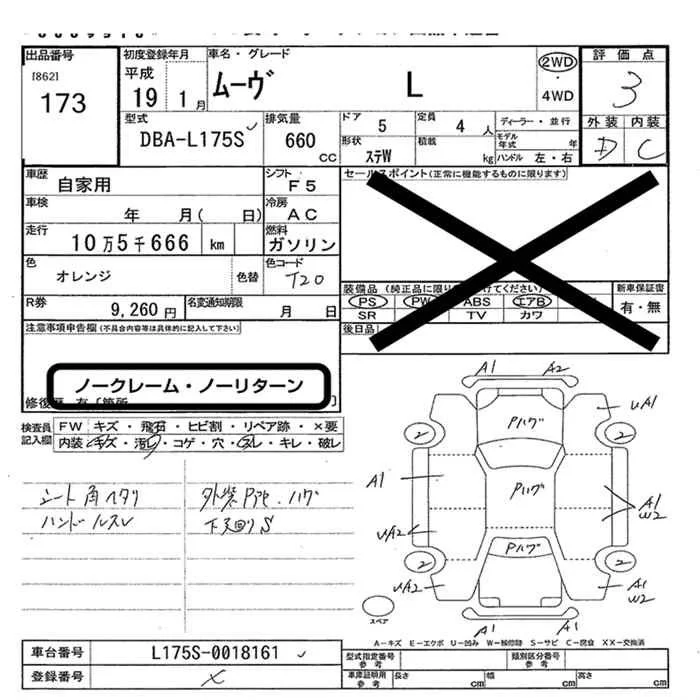 出品番号
[862]
173
初度登録年月
平成
19 1月
車名・グレード
ムーヴ L
2WD
・
4WD
評価点
3
外装 内装
D C
型式
DBA-L175S
排気量
660
CC
ドア 5
定員 4 人
形状 ステW
積載 kg
ディーラー・並行
モデル年式 年
ハンドル 左・右
車歴
自家用
シフト
F5
車検
年 月( 日)
冷房
AC
走行
10万5千666 km
燃料
ガソリン
色
オレンジ
色替
色コード
T20
R券
9,260円
名変通知期限
月 日
セールスポイント(正常に機能するものに限ります)
装備品
PS PW ABS エアB
SR TV カワ
新車保証書
有・無
後日品
注意事項申告欄(不具合内容等は具体的に記入して下さい)
ノークレーム・ノーリターン
検査員記入欄
FW キズ・飛石・ヒビ割・リペア跡・×要
内装 キズ・汚れ・コゲ・穴・スレ・キレ・破レ
シート角ヘタリ
ハンドルスレ
下廻りS
A1 A2
uA1
2 2
Pハゲ
A1
Pハゲ
A1
W2
uA2
Pハゲ
2 2
uA2
A1
W2
A1 A1
スペア
A-キズ E-エクボ U-凹み W-補修跡 S-サビ C-腐食 XX-交換済
車台番号
L175S-0018161
登録番号
×
型式指定番号
参考
類別区分番号
参考
車庫証明用
参考
長さ cm
幅 cm
高さ cm